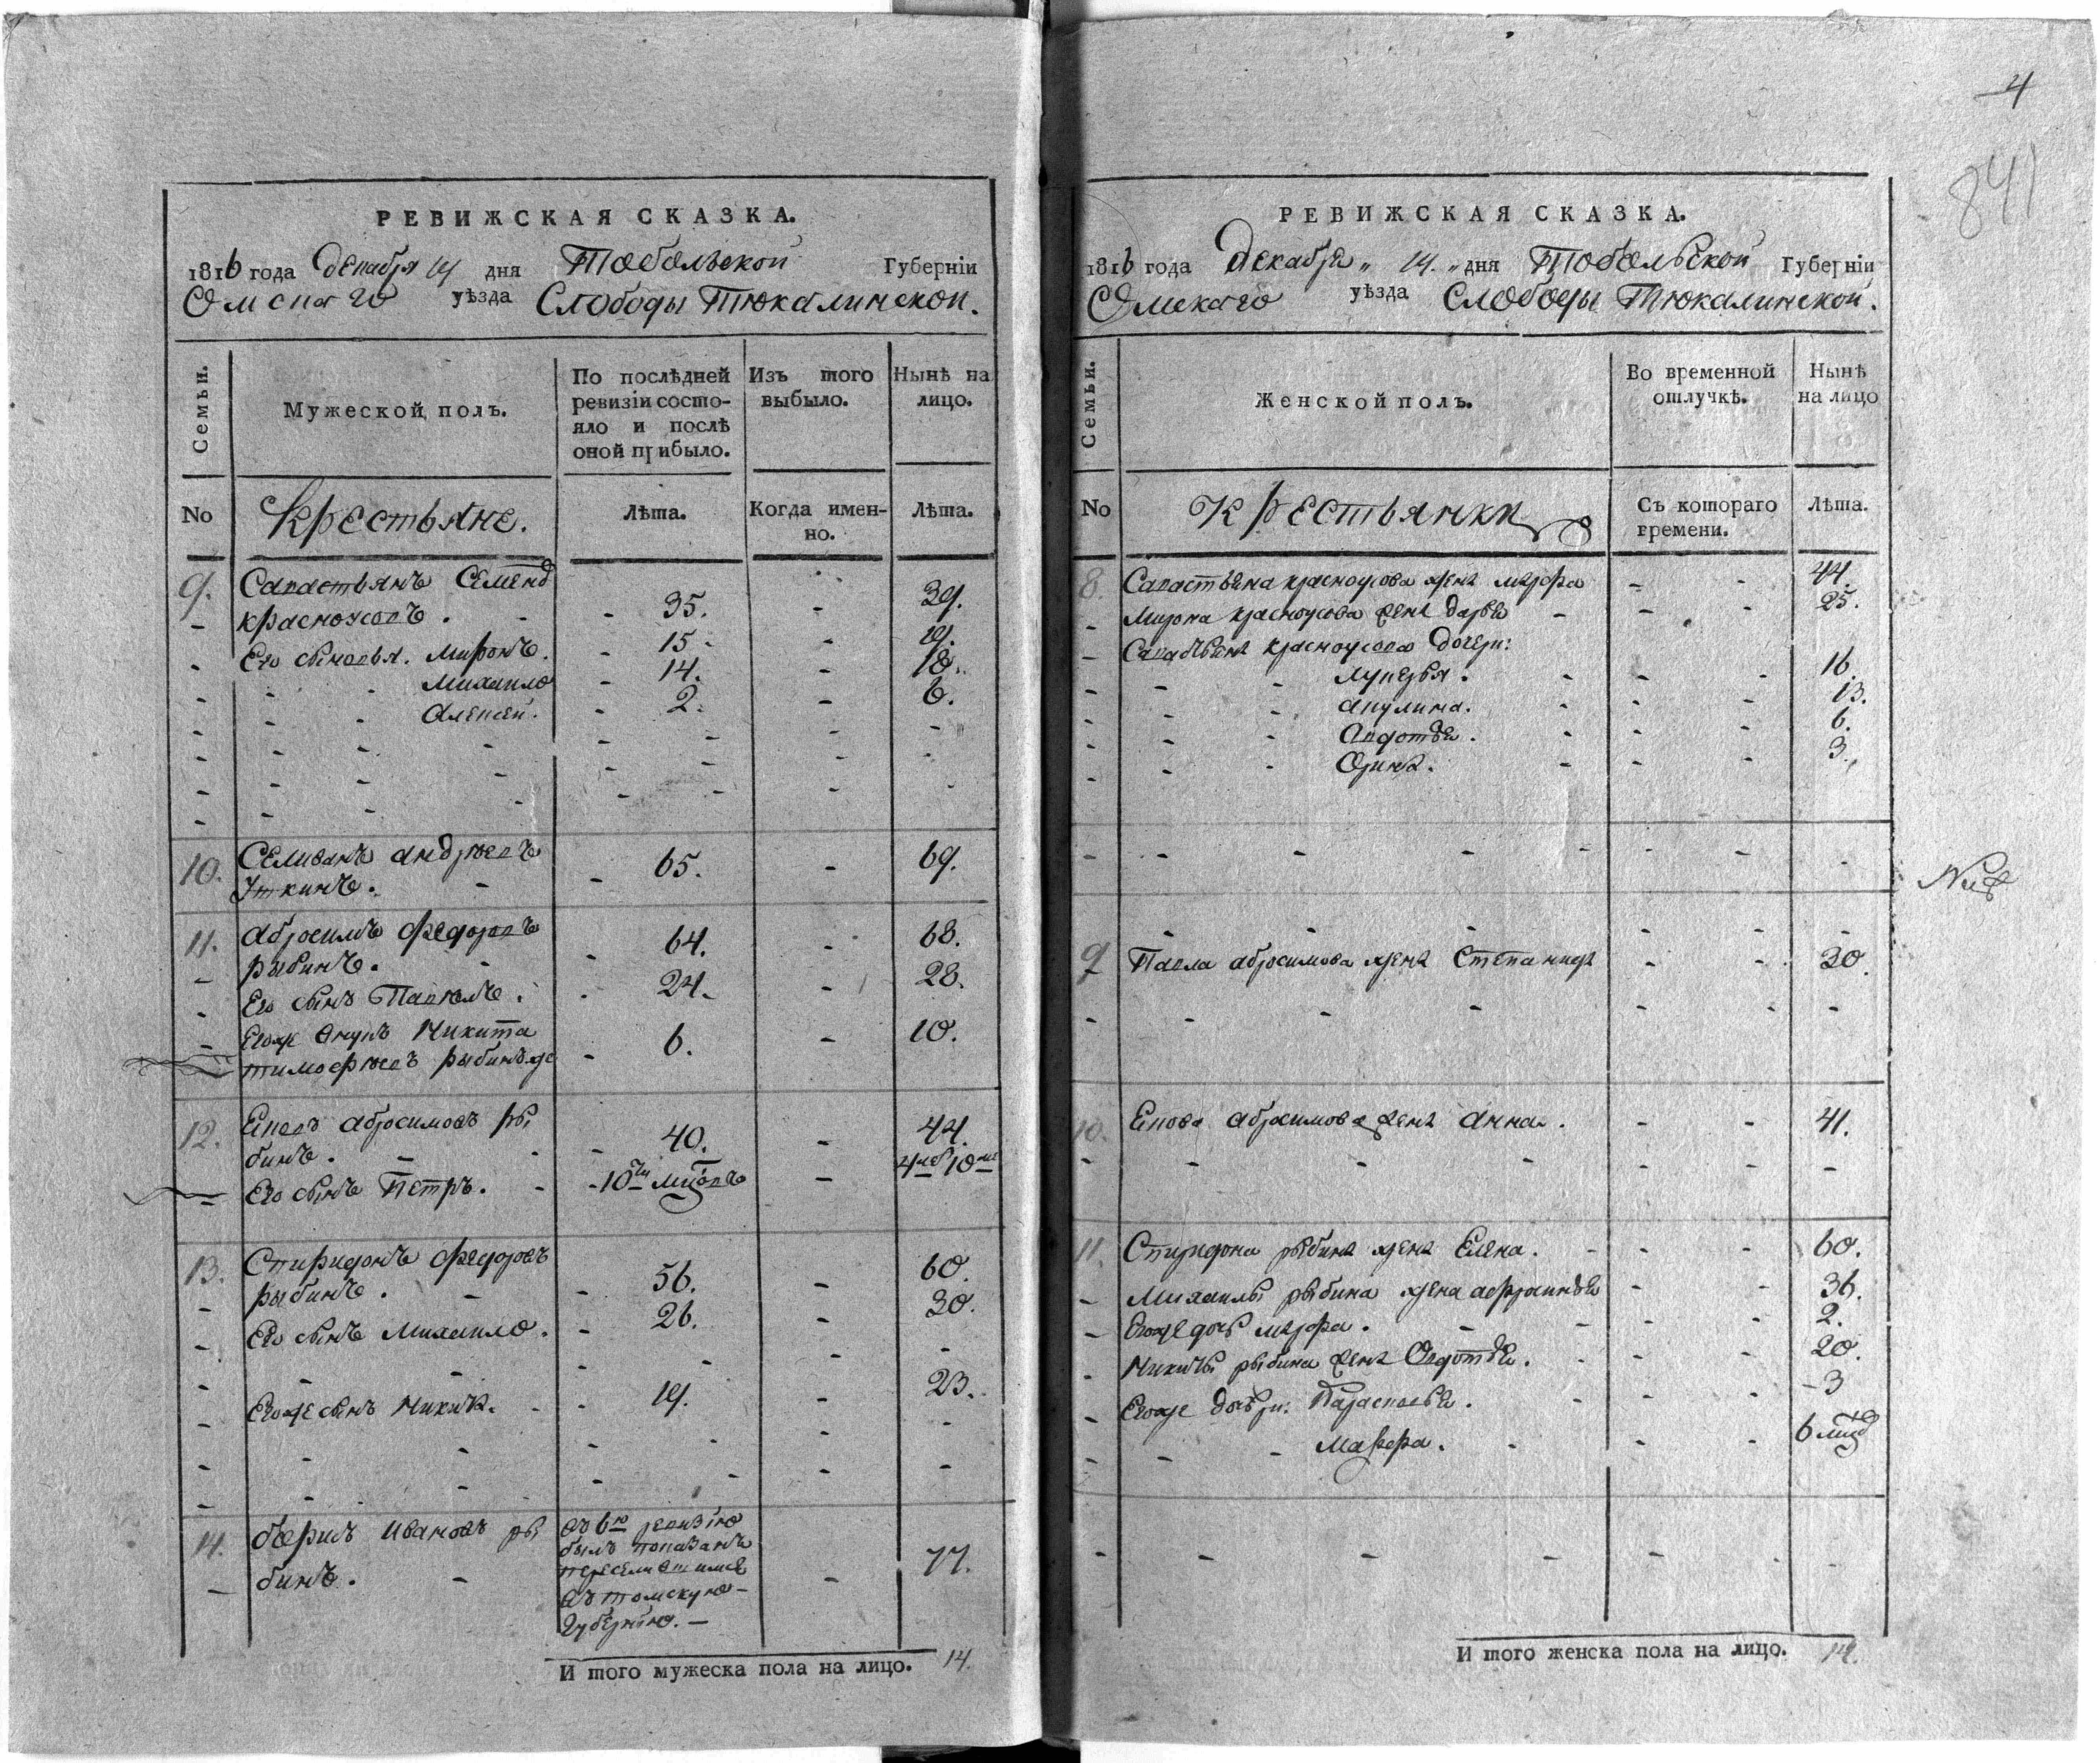 РЕВИЖСКАЯ СКАЗКА.
1816 года Декабря 14 дня Тобольской Губерніи
Омскаго уѣзда Слободы Тюкалинской.
Семьи.
Мужеской полъ.
По послѣдней ревизіи состо-
яло и послѣ
оной прибыло.
Изъ того
выбыло.
Нынѣ на
лицо.
No
Крестьяне.
Лѣта.
Когда имен-
но.
Лѣта.
9. Савастьянъ Семенъ
Красноусовъ. 35. 39.
Его сыновья. Миронъ. 15 19.
Михаило 14. 18.
Алексей. 2. 6.
10. Селиванъ Андреевъ
Уткинъ. 65. 69.
11. Абросимъ Федоровъ
рыбинъ. 64. 68.
Его сынъ Павелъ. 24. 28.
Егоже внукъ Никита
тимофеевъ рыбинъже 6. 10.
12. Еповъ абросимовъ ры
бинъ. 40. 44.
Его сынъ Петръ. 10
13. Спиридонъ Федоровъ
рыбинъ. 56. 60.
Его сынъ Михаило. 26. 30.
Егоже сынъ Никита. 19. 23.
14. борисъ Ивановъ ры
бинъ. 77.
въ 6ю ревизію
былъ показанъ
переселившимся
въ томскую
губернію.
И того мужеска пола на лицо. 14.
4
841
РЕВИЖСКАЯ СКАЗКА.
1816 года Декабря 14. дня Тобольской Губерніи
Омскаго уѣзда Слободы Тюкалинской.
Семьи.
Женской полъ.
Во временной
отлучкѣ.
Нынѣ
на лицо
No
Крестьянки
Съ котораго
времени.
Лѣта.
8. Савастьяна красноусова жена марфа 44.
Мирона красноусова жена дарья 25.
Савастьяна красноусова дочери:
Лукерья. 16.
акулина. 13.
Авдотья. 6.
Орина. 3.
9 Павла абросимова жена Степанида 30.
10. Епова абросимова жена Анна. 41.
11. Спиридона рыбина жена Елена. 60.
Михаилы рыбина жена афросинья 36.
Егоже дочь марфа. 2.
Никиты рыбина жена Авдотья. 20.
Егоже дочери: Парасковья. 3
Марфа. 6
И того женска пола на лицо. 14.